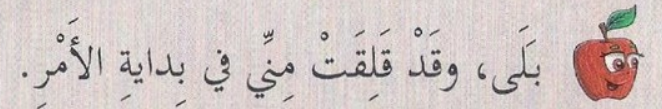 بَلَى، وقَدْ قَلِقَتْ مِنِّي في بِدايةِ الأَمْرِ.